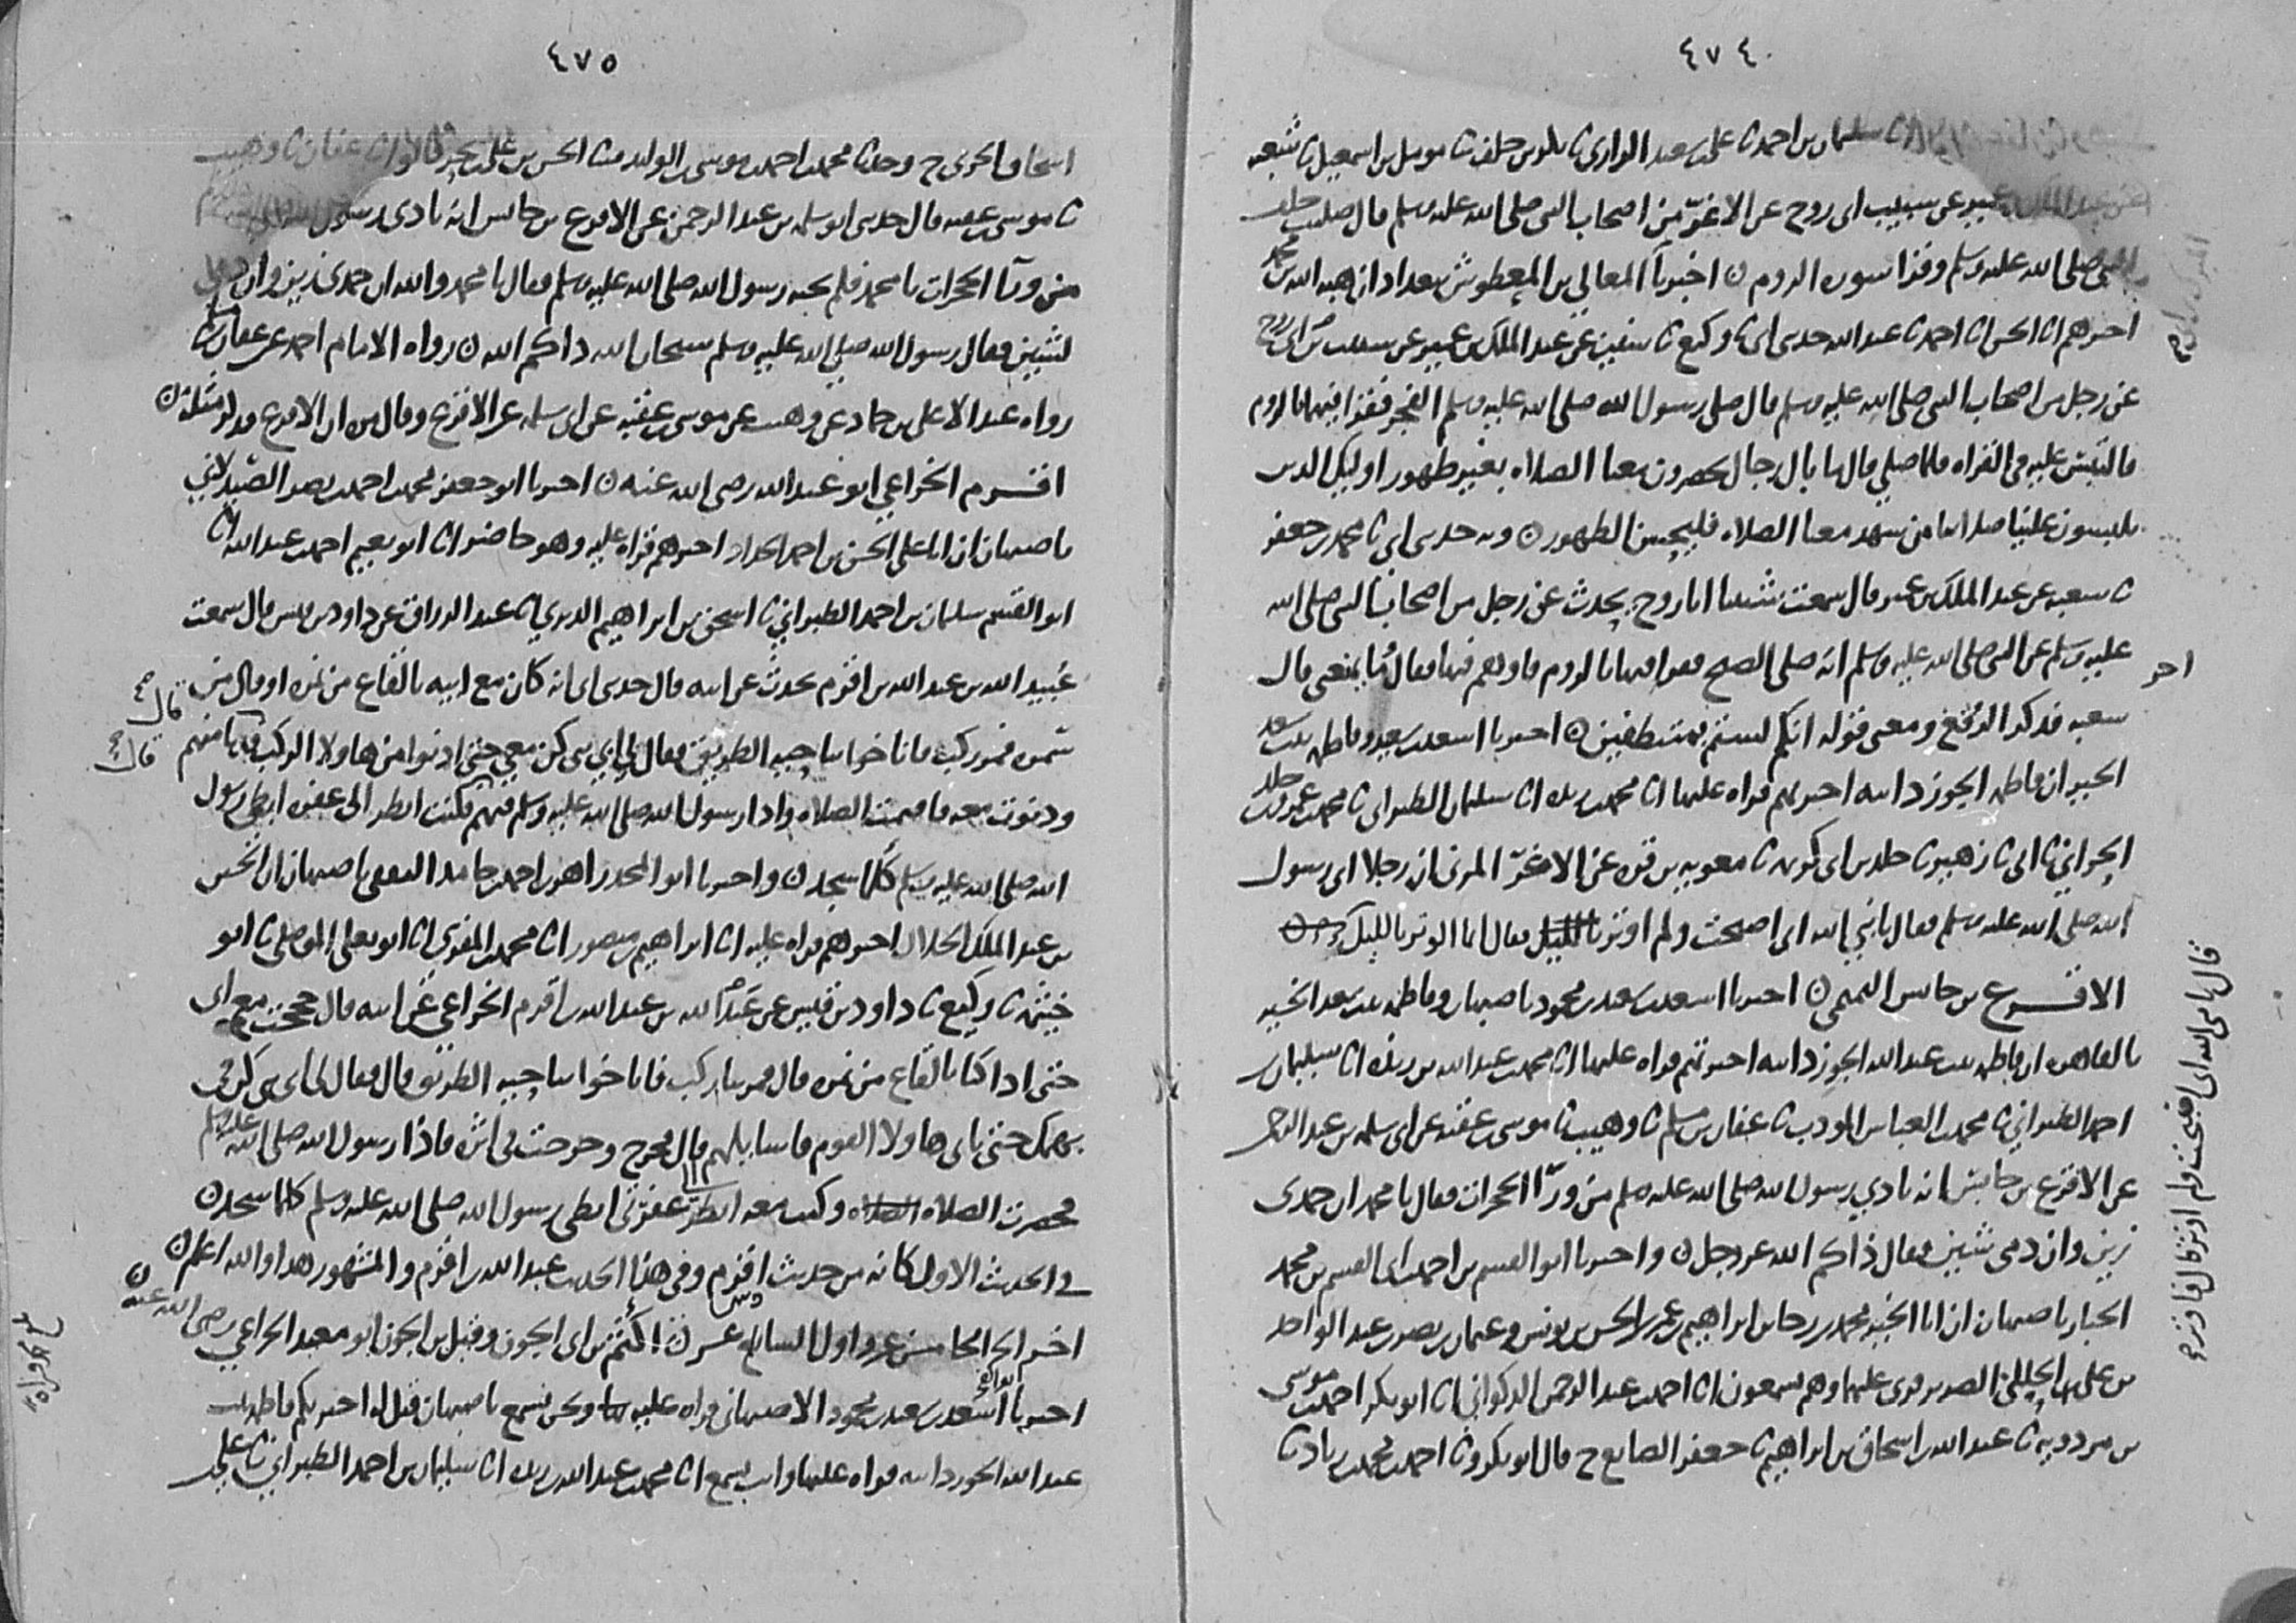 ٤٧٤
سليمان بن احمد ثنا علي بن سعيد الرازي ثنا خلف ثنا مومل بن اسمعيل ثنا شعبه
عن عبد الملك بن عمير عن شبيب ابي روح عن الاغر من اصحاب النبي صلى الله عليه وسلم قال صليت خلف
النبي صلى الله عليه وسلم وقرا سوره الروم ن اخبرنا ابو المعالي بن المعطوش ببغداد ان هبه الله بن محمد
اخبرهم انا الحسن انا احمد ثنا عبد الله حدثني ابي ثنا وكيع ثنا سفين عن عبد الملك بن عمير عن شبيب ابي روح
عن رجل من اصحاب النبي صلى الله عليه وسلم قال صلى رسول الله صلى الله عليه وسلم الفجر فقرا فيهما بالروم
فالتبس عليه في القراه فلما صلى قال ما بال رجال يحضرون معنا الصلاه بغير طهور اوليك الذين
يلبسون علينا صلاتنا من شهد معنا الصلاه فليحسن الطهور ن وبه حدثني ابي ثنا محمد بن جعفر
ثنا شعبه عن عبد الملك بن عمير قال سمعت شبيبا ابا روح يحدث عن رجل من اصحاب النبي صلى الله
عليه وسلم عن النبي صلى الله عليه وسلم انه صلى الصبح فقرا فيها بالروم فاوهم فيها فقال ما يمنعني قال
شعبه فذكر الرفغ ومعنى قوله انكم لستم بمتنظفين ن اخبرنا اسعد بن سعيد وفاطمه بنت سعد
الخير ان فاطمه الجوزدانيه اخبرتهم قراه عليها انا محمد بن ريذه انا سليمان الطبراني ثنا محمد بن عمرو بن خالد
الحراني ثنا ابي ثنا زهير ثنا خالد بن ابي كريمه ثنا معويه بن قره عن الاغر المزني ان رجلا اتى رسول
الله صلى الله عليه وسلم فقال يا نبي الله اني اصبحت ولم اوتر فقال انما الوتر بالليل
الاقرع بن حابس التميمي ن اخبرنا اسعد بن سعيد بن محمود باصبهان وفاطمه بنت سعد الخير
بالقاهره ان فاطمه بنت عبد الله الجوزدانيه اخبرتهم قراه عليها انا محمد بن عبد الله بن ريذه انا سليمان بن
احمد الطبراني ثنا محمد بن العباس المودب ثنا عفان بن مسلم ثنا وهيب ثنا موسى بن عقبه عن ابي سلمه بن عبد الرحمن
عن الاقرع بن حابس انه نادى رسول الله صلى الله عليه وسلم من ورآ الحجرات فقال يا محمد ان حمدي
زين وان ذمي شين فقال ذاكم الله عز وجل ن واخبرنا ابو القسم بن احمد بن ابي القسم بن محمد
الخباز باصبهان ان ابا الخير محمد بن رجا بن ابراهيم بن عمر بن الحسن بن يونس وعثمان بن نصر بن عبد الواحد
بن علي الضرير قرى عليهما وهم يسمعون انا احمد بن عبد الرحمن الذكواني انا ابو بكر احمد بن موسى
بن مردويه ثنا عبد الله بن اسحاق بن ابراهيم ثنا جعفر الصايغ ح قال ابو بكر وثنا احمد بن محمد بن زياد ثنا
قال يا نبي الله اني اصبحت ولم اوتر قال فاوتر
٤٧٥
اسحاق الحربي ح وحدثنا محمد بن احمد بن موسى بن الوليد ثنا الحسن بن علي بن بحر قالوا ثنا عفان ثنا وهيب
ثنا موسى بن عقبه قال حدثني ابو سلمه بن عبد الرحمن عن الاقرع بن حابس انه نادى رسول
من ورآ الحجرات يا محمد فلم يجبه رسول الله صلى الله عليه وسلم فقال يا محمد والله ان حمدي زين وان ذمي
لشين فقال رسول الله صلى الله عليه وسلم سبحان الله ذاكم الله ن رواه الامام احمد عن عفان
رواه عبد الاعلى بن حماد عن وهيب عن موسى بن عقبه عن ابي سلمه عن الاقرع وقال مره ان الاقرع فذكر مثله ن
اقرم الخزاعي ابو عبد الله رضى الله عنه ن اخبرنا ابو جعفر محمد بن احمد بن نصر الصيدلاني
باصبهان ان ابا علي الحسن بن احمد الحداد اخبرهم قراه عليه وهو حاضر انا ابو نعيم احمد بن عبد الله انا
ابو القسم سليمان بن احمد الطبراني ثنا اسحق بن ابراهيم الدبري انا عبد الرزاق عن داود بن قيس قال سمعت
عبيد الله بن عبد الله بن اقرم يحدث عن ابيه قال حدثني ابي انه كان مع ابيه بالقاع من نمره او قال من
ثمره فمر ركب فاناخوا بناحيه الطريق فقال لي ابي يا بني كن معي حتى ادنوا من هاولا الركب فدنا منهم
ودنوت معه فاقيمت الصلاه واذا رسول الله صلى الله عليه وسلم فيهم فكنت انظر الى عفره ابطي رسول
الله صلى الله عليه وسلم كلما سجد ن واخبرنا ابو المجد زاهر بن احمد بن حامد الثقفي باصبهان ان الحسن
بن عبد الملك الخلال اخبرهم قراه عليه انا ابراهيم بن منصور انا محمد بن المقري انا ابو يعلى الموصلي ثنا ابو
خيثمه ثنا وكيع ثنا داود بن قيس عن عبيد الله بن عبد الله بن اقرم الخزاعي عن ابيه قال حججت مع ابي
حتى اذا كنا بالقاع من نمره قال فمر بنا ركب فاناخوا بناحيه الطريق قال فقال لي ابي يا بني كن في
بهمك حتى ناتي هاولا القوم فاسايلهم قال فخرج وخرجت في اثره فاذا رسول الله صلى الله عليه وسلم
فحضرت الصلاه وكنت معه انظر الى عفرتي ابطي رسول الله صلى الله عليه وسلم كلما سجد ن
في الحديث الاول كانه من حديث اقرم وفي هذا الحديث عبد الله بن اقرم والمشهور هذا والله اعلم ن
اخر الجز الخامس عشر واول السادس عشر ن اكثم بن ابي الجون وقيل بن الجون ابو معبد الخزاعي رضى الله عنه ن
اخبرنا اسعد بن سعيد بن محمود الاصبهاني قراه عليه ونحن نسمع باصبهان قيل له اخبرتكم فاطمه بنت
عبد الله الجوزدانيه قراه عليها وانت تسمع انا محمد بن عبد الله بن ريذه انا سليمان بن احمد الطبراني ثنا علي بن